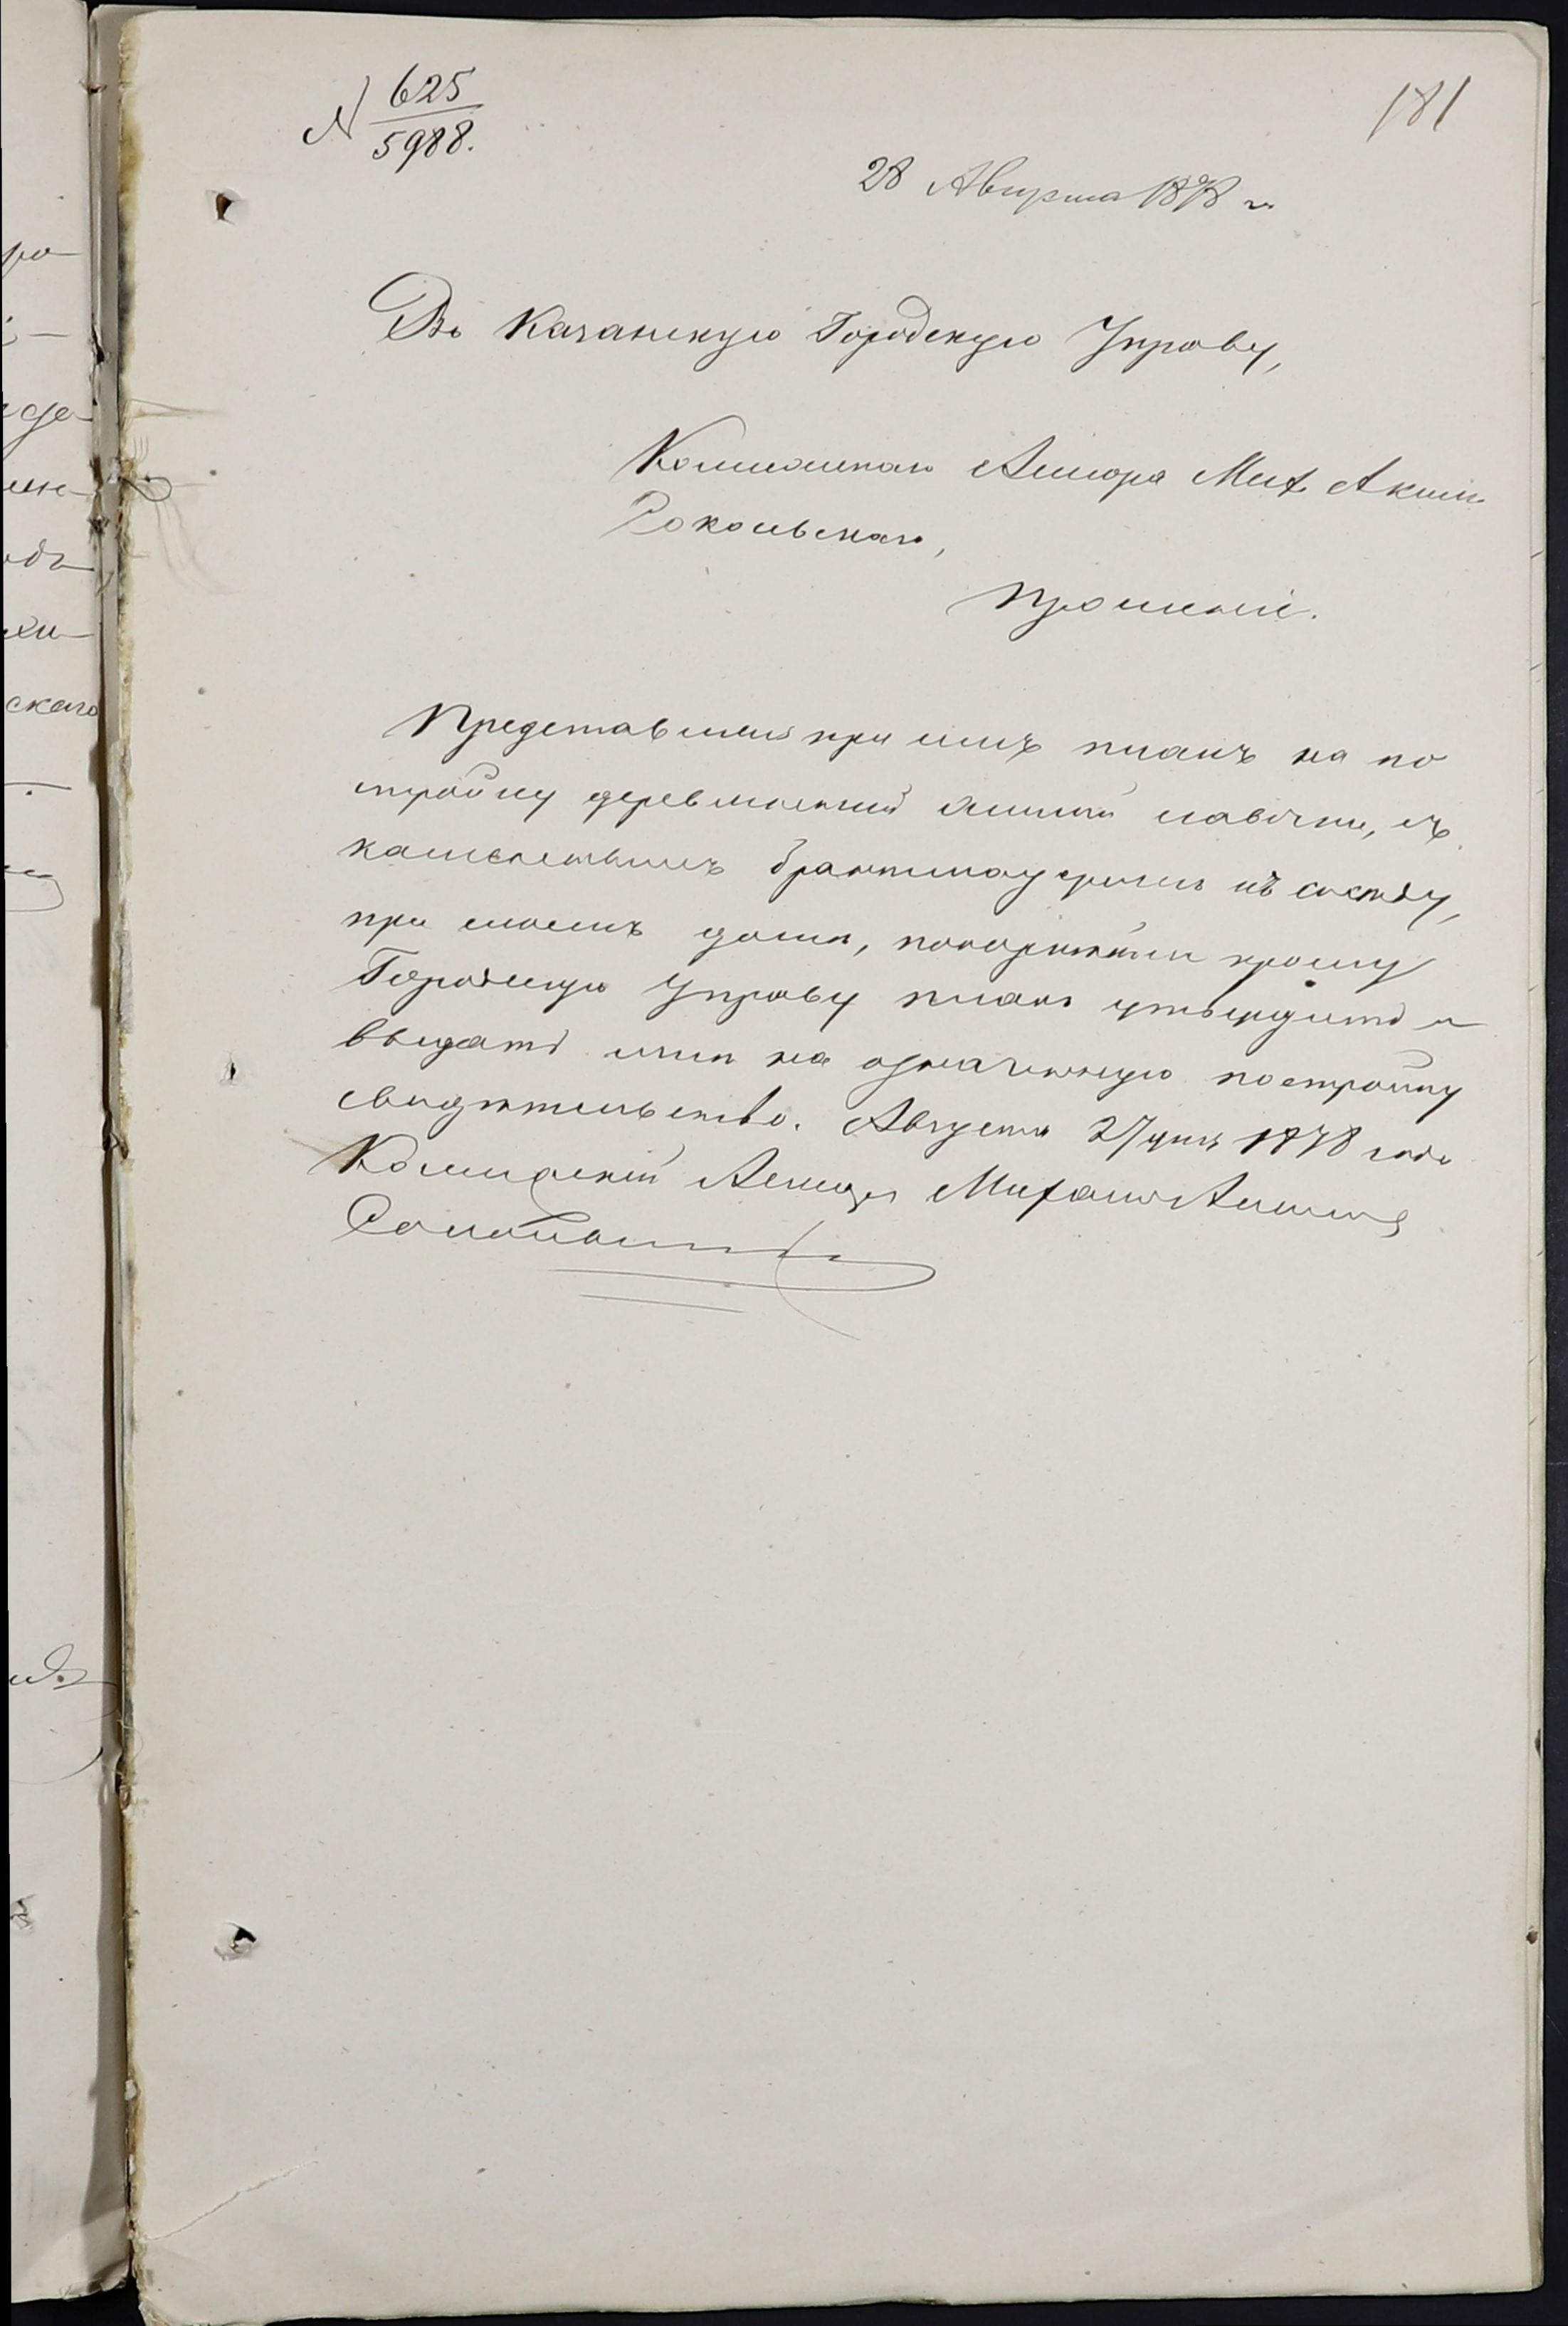 № 625
5988.
181
28 Августа 1878 г.
Въ Казанскую Городскую Управу,
Коллежскаго Ассесора Мих. Аким.
Сокольскаго,
Прошеніе.
Представляя при семъ планъ на по
стройку деревянной лавочки, съ
каменнымъ брантмауэромъ къ сосѣду,
при моемъ домѣ, покорнѣйше прошу
Городскую Управу планъ утвердить и
выдать мнѣ на означенную постройку
свидѣтельство. Августа 27 дня 1878 года
Коллежскій Ассесоръ Михаилъ Акимовъ
Сокольскій